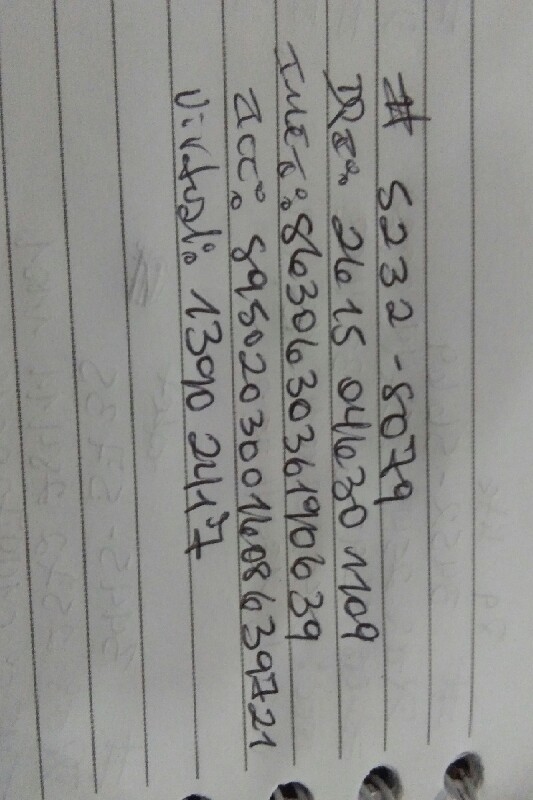 # 5232-8079
DPI: 2615 04630 1109
IMEI: 863063036190639
ICC: 8950203001608639721
Virtual: 1390 2417